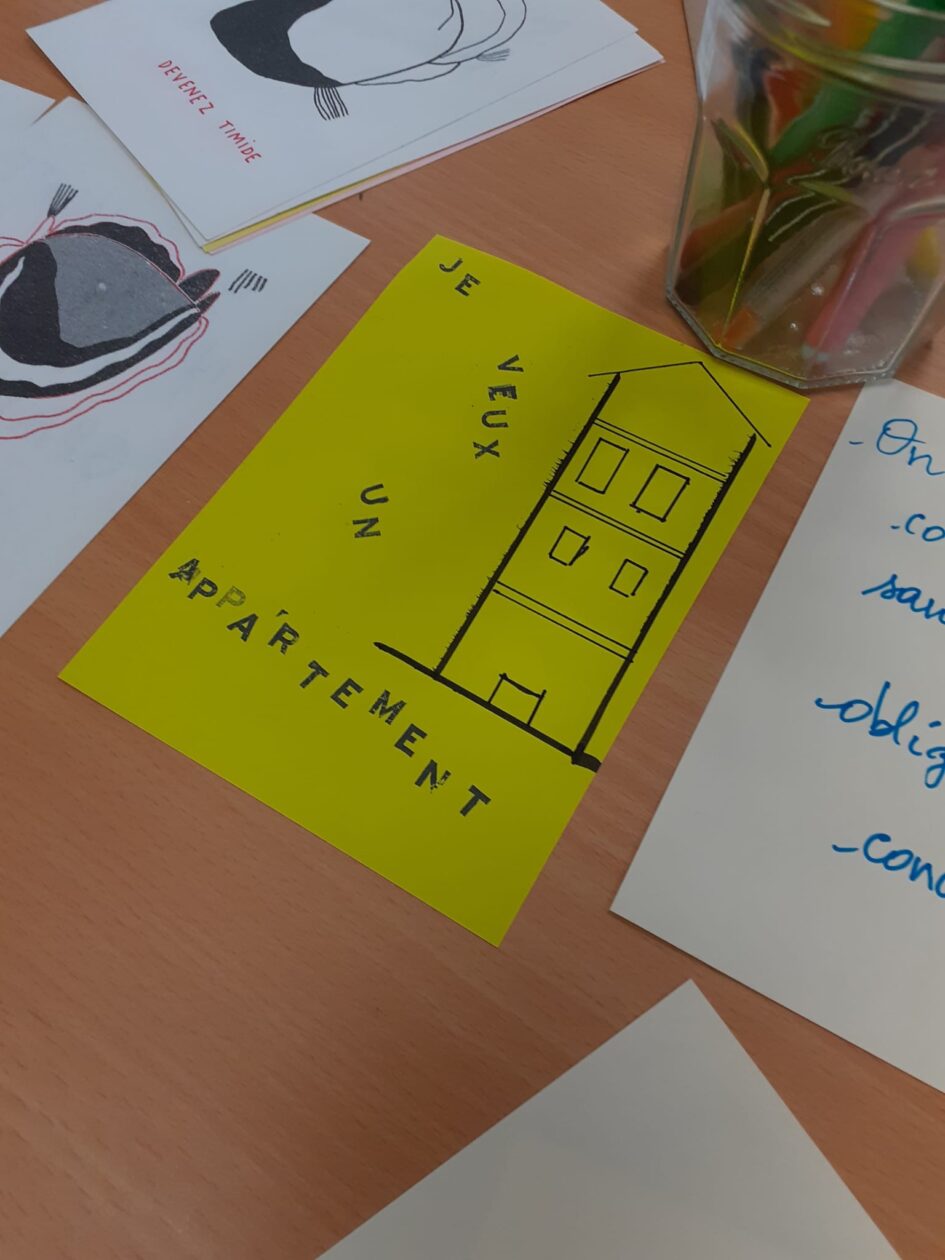 DEVENEZ TIMIDE
JE
VEUX
UN
APPA'RTEMENT
- On
-oblig